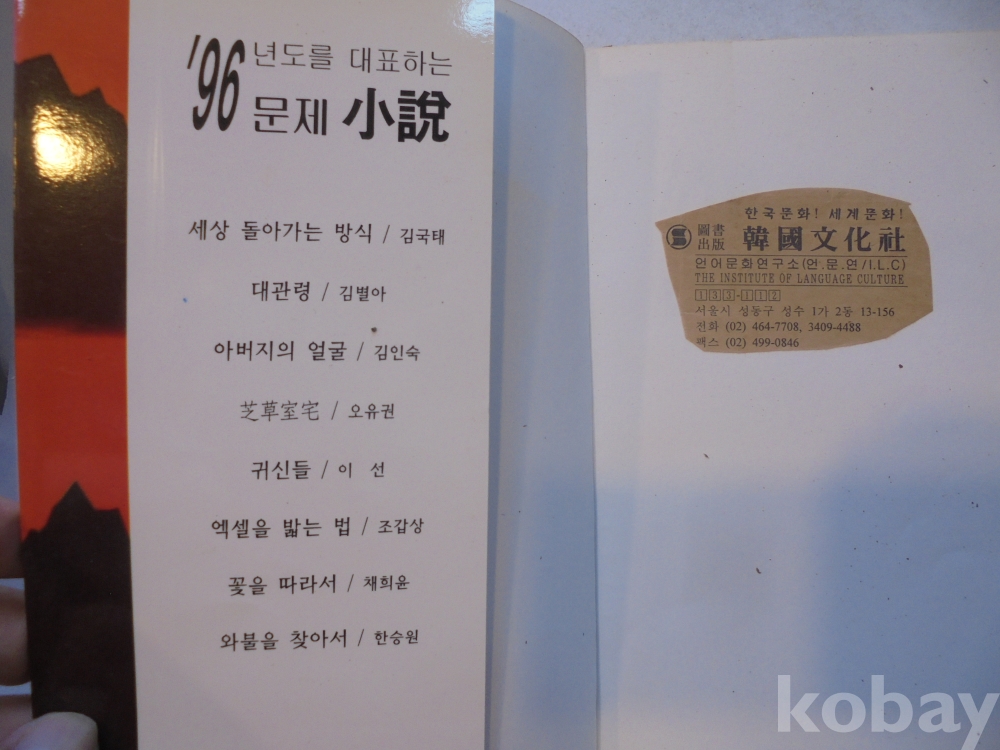 '96 년도를 대표하는
문제 小說
세상 돌아가는 방식 / 김국태
대관령 / 김별아
아버지의 얼굴 / 김인숙
芝草室宅 / 오유권
귀신들 / 이 선
엑셀을 밟는 법 / 조갑상
꽃을 따라서 / 채희윤
와불을 찾아서 / 한승원
한국문화! 세계문화!
圖書出版 韓國文化社
언어문화연구소(언.문.연/I.L.C)
THE INSTITUTE OF LANGUAGE CULTURE
133-112
서울시 성동구 성수 1가 2동 13-156
전화 (02) 464-7708, 3409-4488
팩스 (02) 499-0846
kobay